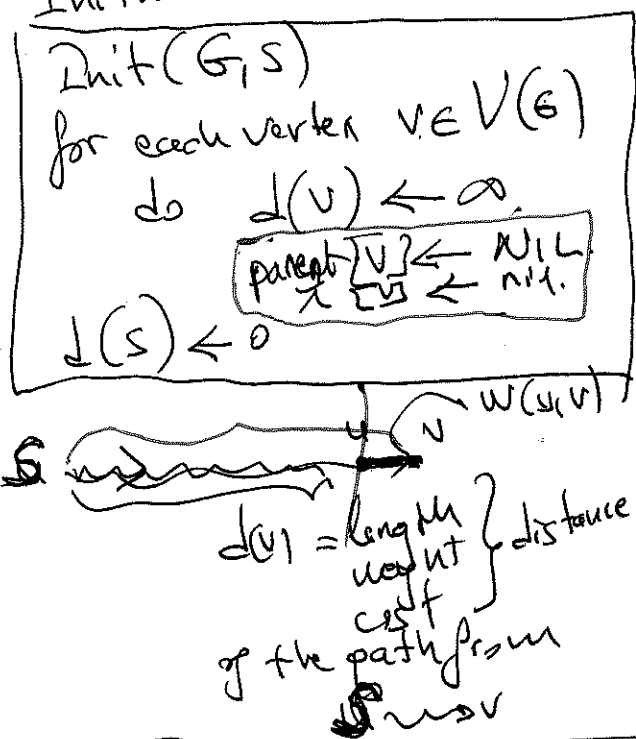 Init(G,S)
for each vertex v ∈ V(G)
do d(v) ← ∞.
parent[v] ← NIL
π[v] ← nil.
d(s) ← 0
u v w(u,v)
S
d(v) = length
weight } distance
cost
of the path from
S ⇝ v